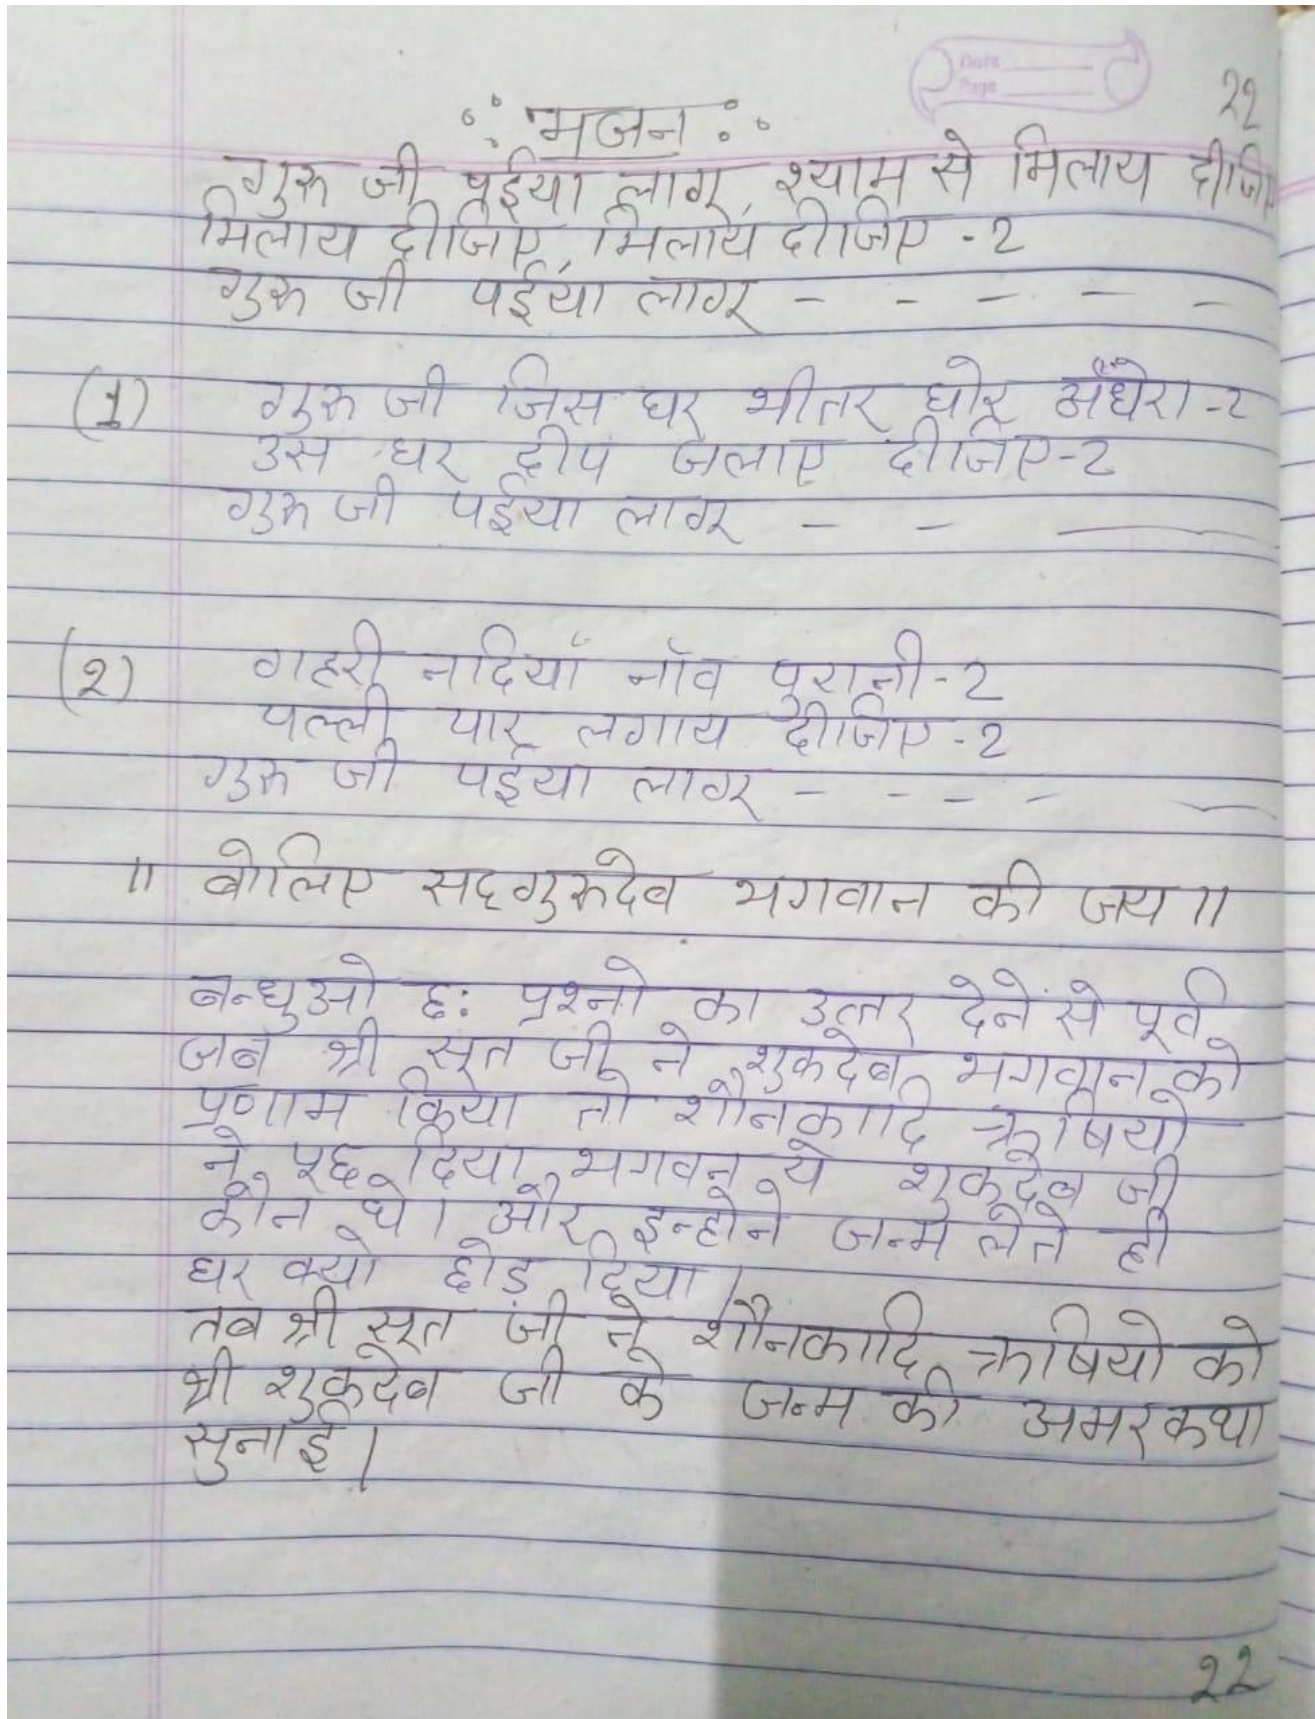 Date
Page
22
भजन
गुरु जी पईया लागू, श्याम से मिलाय दीजिए
मिलाय दीजिए, मिलाय दीजिए -2
गुरु जी पईया लागू - - - - -
(1) गुरु जी जिस घर भीतर घोर अँधेरा -2
उस घर दीप जलाए दीजिए-2
गुरु जी पईया लागू - - -
(2) गहरी नदियाँ नाँव पुरानी -2
पल्ली पार लगाय दीजिए -2
गुरु जी पईया लागू - - - - -
॥ बोलिए सद्गुरुदेव भगवान की जय ॥
बन्धुओ छः प्रश्नो का उत्तर देने से पूर्व
जब श्री सूत जी ने शुकदेव भगवान को
प्रणाम किया तो शौनकादि ऋषियो
ने पूछ दिया भगवन ये शुकदेव जी
कौन थे। और इन्होने जन्म लेते ही
घर क्यो छोड़ दिया।
तब श्री सूत जी ने शौनकादि ऋषियो को
श्री शुकदेव जी के जन्म की अमरकथा
सुनाई।
22